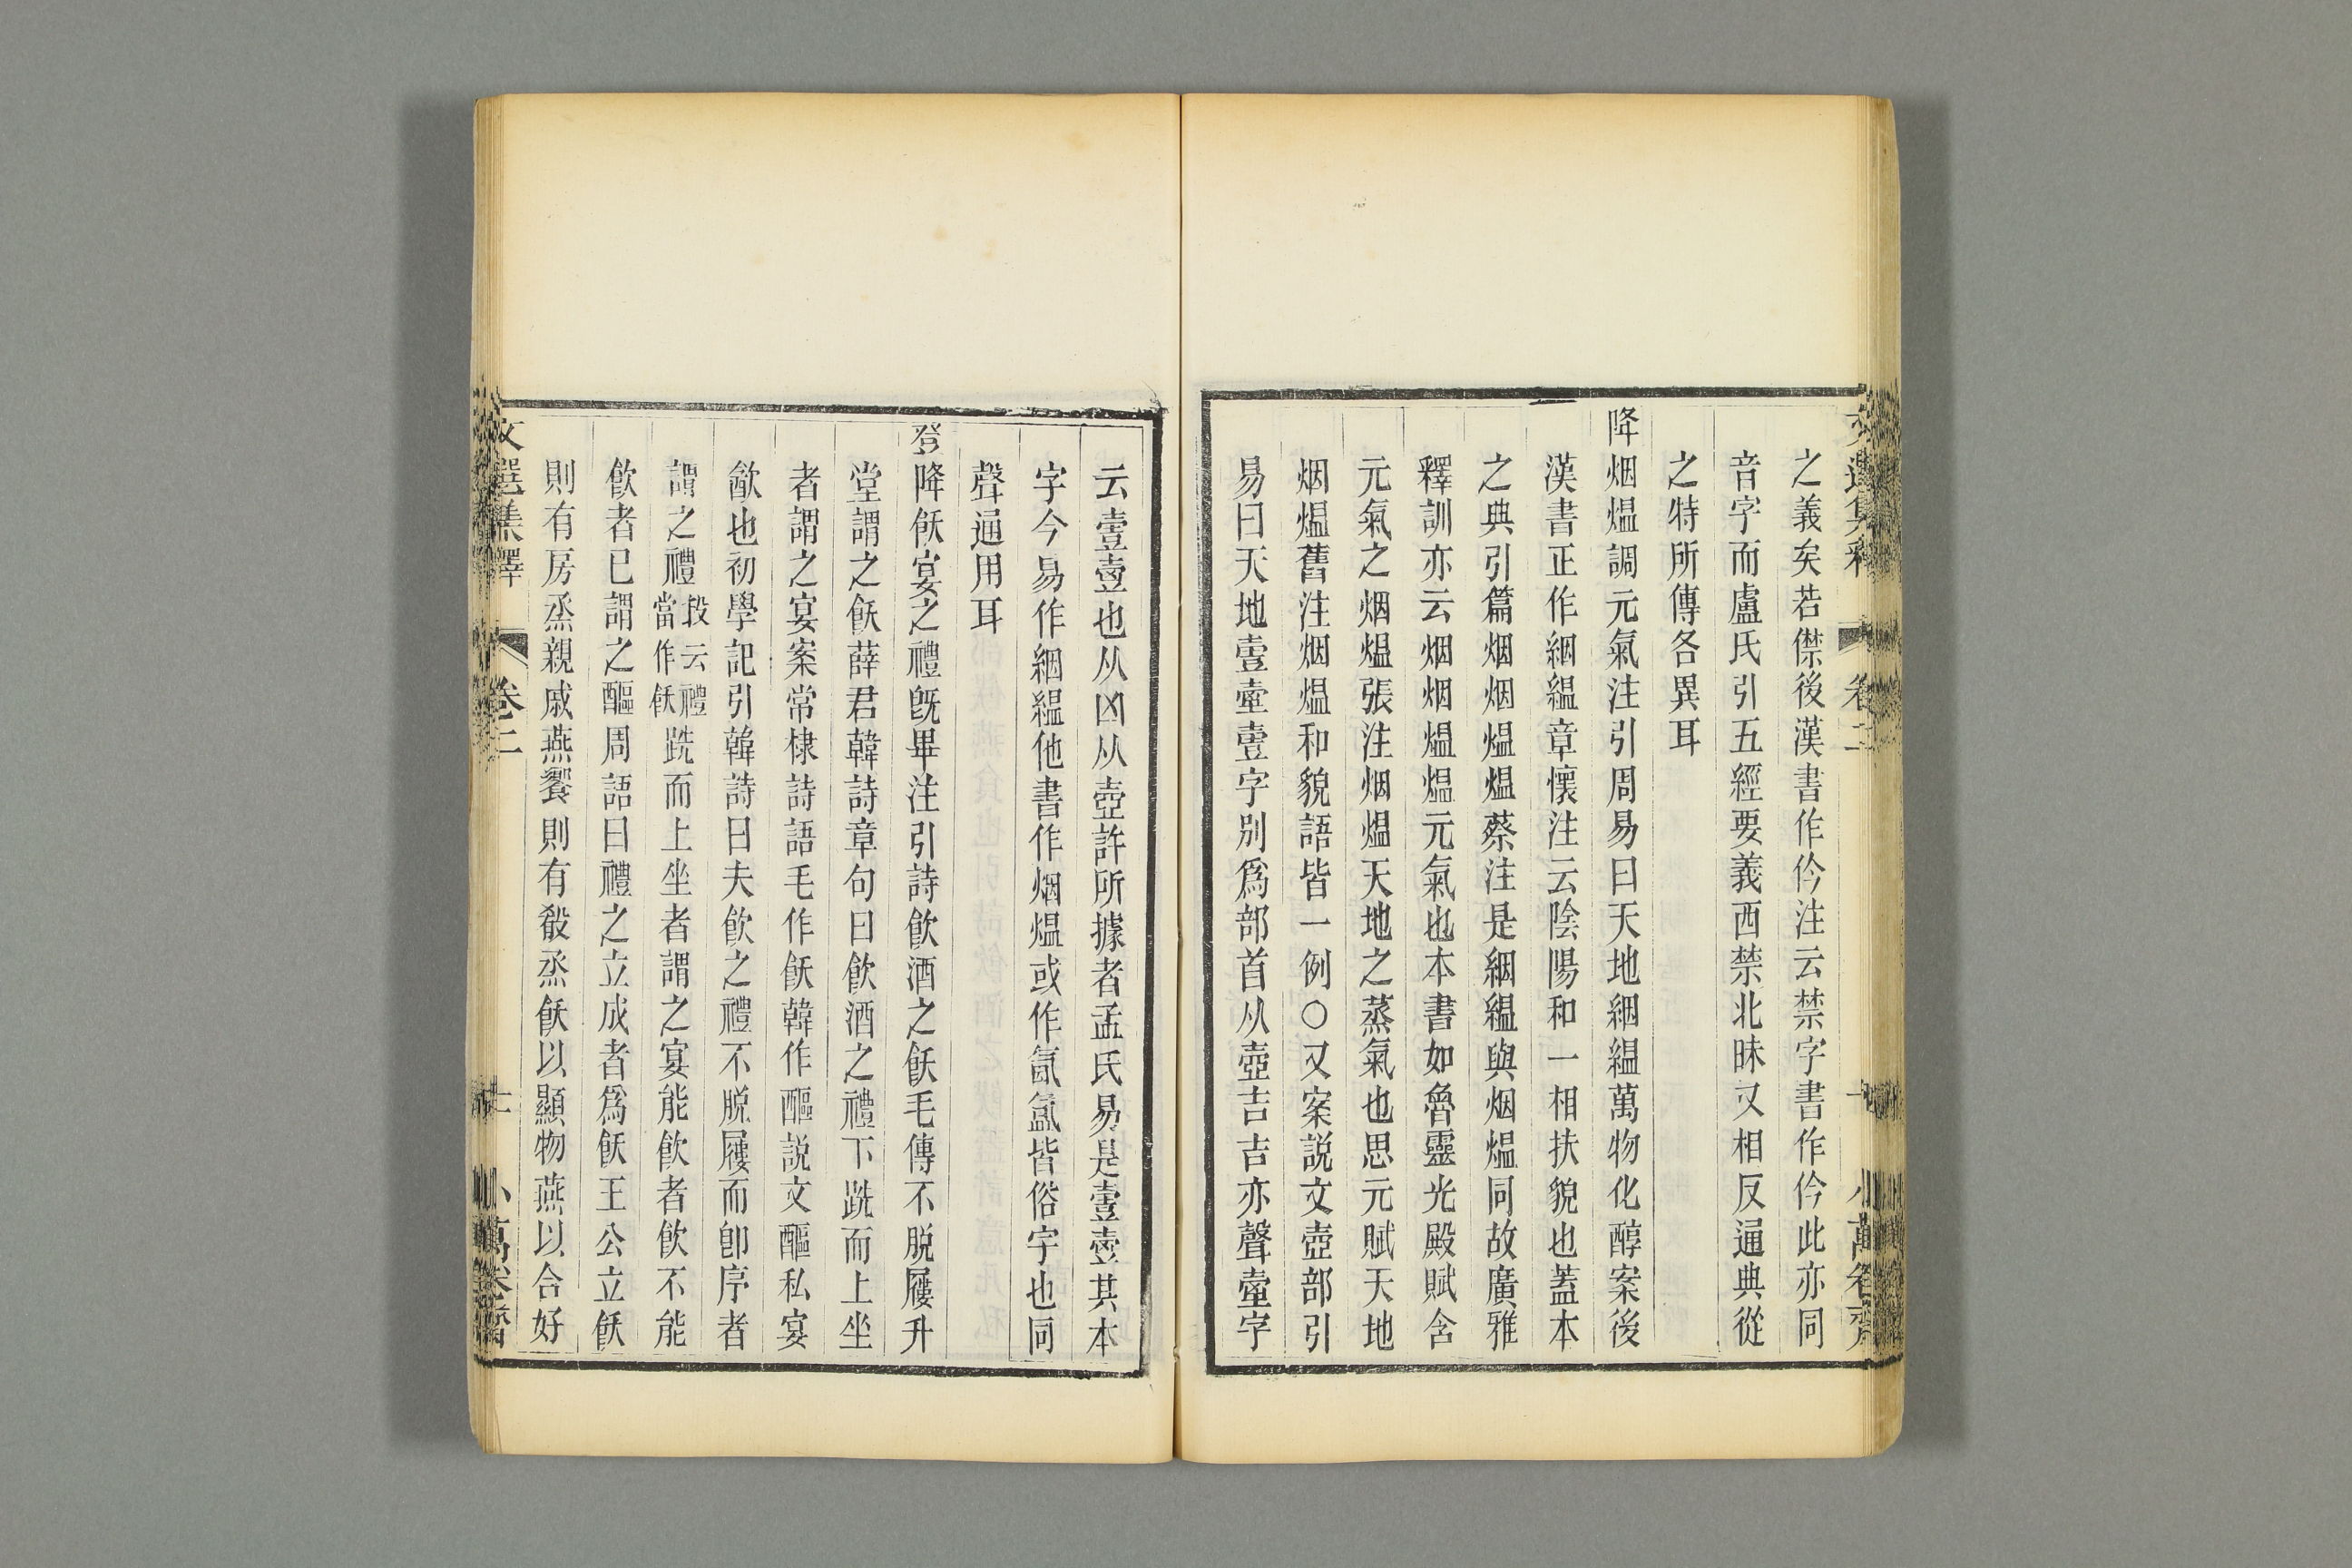 之義矣若僸後漢書作仱注云禁字書作仱此亦同
音字而盧氏引五經要義西禁北昧又相反通典從
之特所傳各異耳
降烟熅調元氣注引周易曰天地絪縕萬物化醇案後
漢書正作絪縕章懷注云陰陽和一相扶貌也蓋本
之典引篇烟烟熅熅蔡注是絪縕與烟熅同故廣雅
釋訓亦云烟烟熅熅元氣也本書如魯靈光殿賦含
元氣之烟熅張注烟熅天地之蒸氣也思元賦天地
烟熅舊注烟熅和貌語皆一例○又案說文壺部引
易曰天地壹壷壹字別爲部首从壺吉吉亦聲壷字
云壹壷也从凶从壺許所據者孟氏易是壹壷其本
字今易作絪縕他書作烟熅或作氤氳皆俗字也同
聲通用耳
登降飫宴之禮旣畢注引詩飮酒之飫毛傳不脫屨升
堂謂之飫薛君韓詩章句曰飮酒之禮下跣而上坐
者謂之宴案常棣詩語毛作飫韓作醧說文醧私宴
飮也初學記引韓詩曰夫飮之禮不脫屨而卽序者
謂之禮段云禮當作飫跣而上坐者謂之宴能飮者飮不能
飮者已謂之醧周語曰禮之立成者爲飫王公立飫
則有房烝親戚燕饗則有殽烝飫以顯物燕以合好
文選集釋 卷二 十一 小萬卷齋